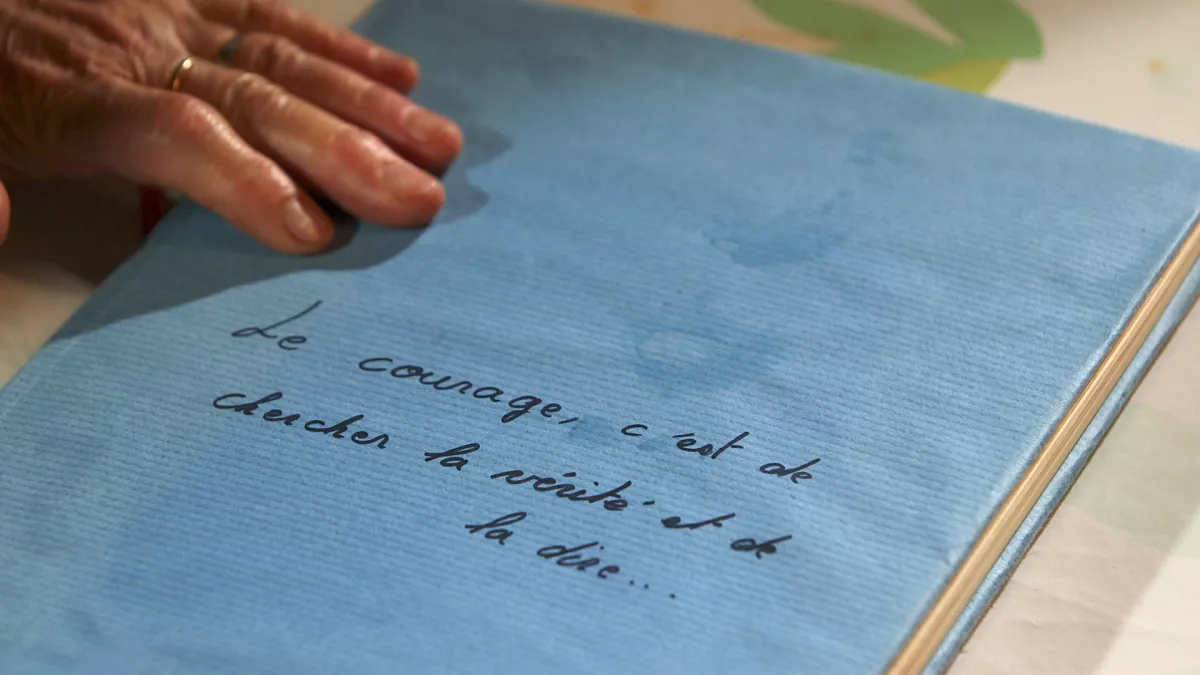 Le courage, c'est de
chercher la vérité et de
la dire...